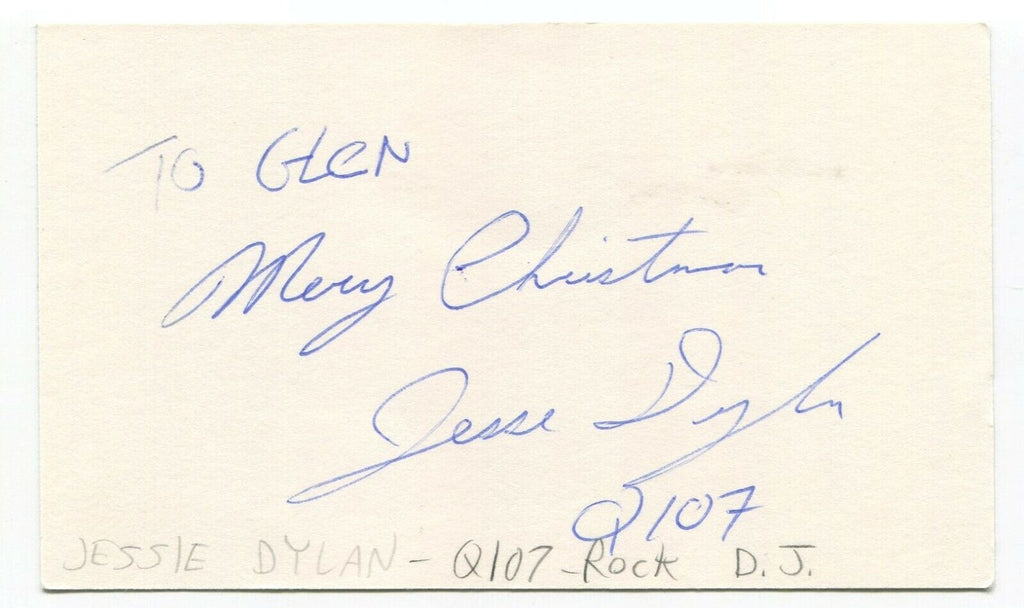 TO GLEN
Merry Christmas
Jesse Dylan
Q107
JESSIE DYLAN - Q107 - ROCK D.J.